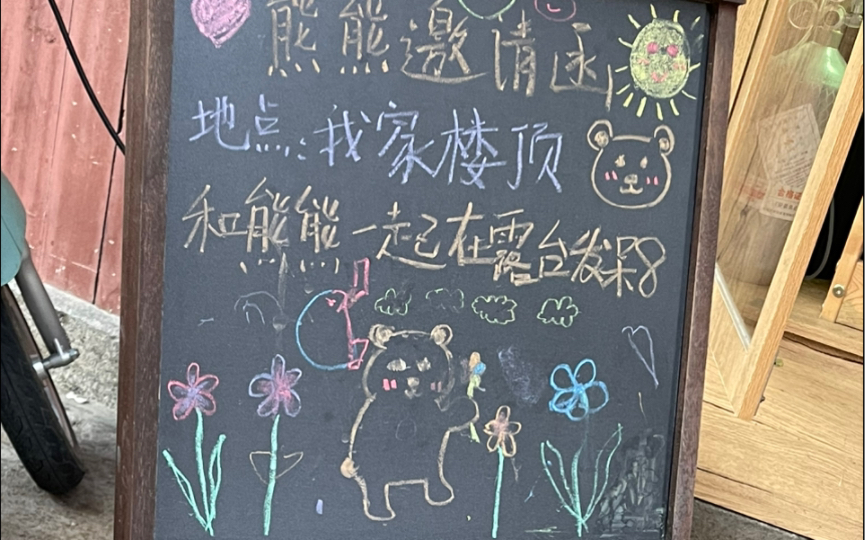 熊熊邀请函
地点:我家楼顶
和熊熊一起在露台发呆